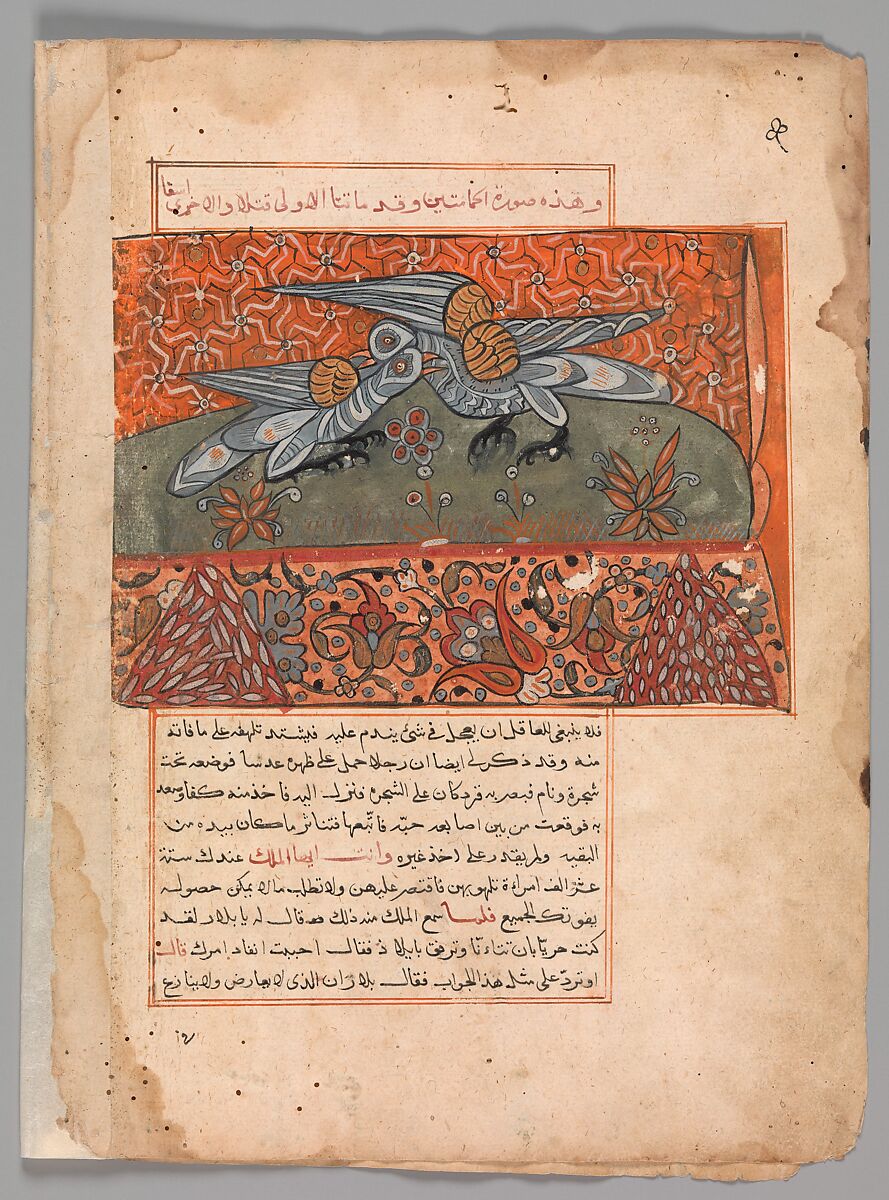 وهذه صورة الحمامتين وقد ماتتا الاولى قتلا والاخرى اسفا
فلا ينبغي للعاقل ان يعجل في شئ يندم عليه فيشتد تلهفه على ما فاته
منه وقد ذكر لي ايضا ان رجلا حمل على ظهره عدسا فوضعه تحت
شجرة ونام فبصر به قرد كان على الشجرة فنزل اليه فاخذ منه كفا وصعد
به فوقعت من بين اصابعه حبه فاتبعها فتناثر ما كان بيده من
البقيه ولم يقدر على اخذ غيره وانت ايها الملك عندك ستة
عشر الف امراءة تلهو بهن فاقتصر عليهن ولا تطلب ما لا يمكن حصوله
يفوتك الجميع فلما سمع الملك منه ذلك قال له يا بلار لقد
كنت حريا بان تتاءنا وترفق يا بلاذ فقال احببت انفاد امرك قال
او ترد على مثل هذا الجواب فقال بلاذ ان الذي لا يعارض ولا ينازع